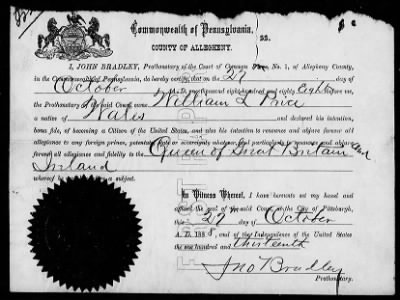 Commonwealth of Pennsylvania,
COUNTY OF ALLEGHENY. } ss.
I, JOHN BRADLEY, Prothonotary of the Court of Common Pleas, No. 1, of Allegheny County,
in the Commonwealth of Pennsylvania, do hereby certify that on the 27 day of
October in the year eighteen hundred and eighty Eight before me,
the Prothonotary of the said Court, came William L Price
a native of Wales and declared his intention,
bona fide, of becoming a Citizen of the United States, and also his intention to renounce and abjure forever all
allegiance to any foreign prince, potentate, State or sovereignty whatever, and particularly to renounce and abjure forever
all allegiance and fidelity to the Queen of Great Britain and
Ireland
whereof he a subject.
In Witness Whereof, I have hereunto set my hand and
affixed the seal of the said Court at the City of Pittsburgh,
this 27 day of October
A. D. 1888, and of the Independence of the United States
the one hundred and thirteenth
Jno Bradley
Prothonotary.